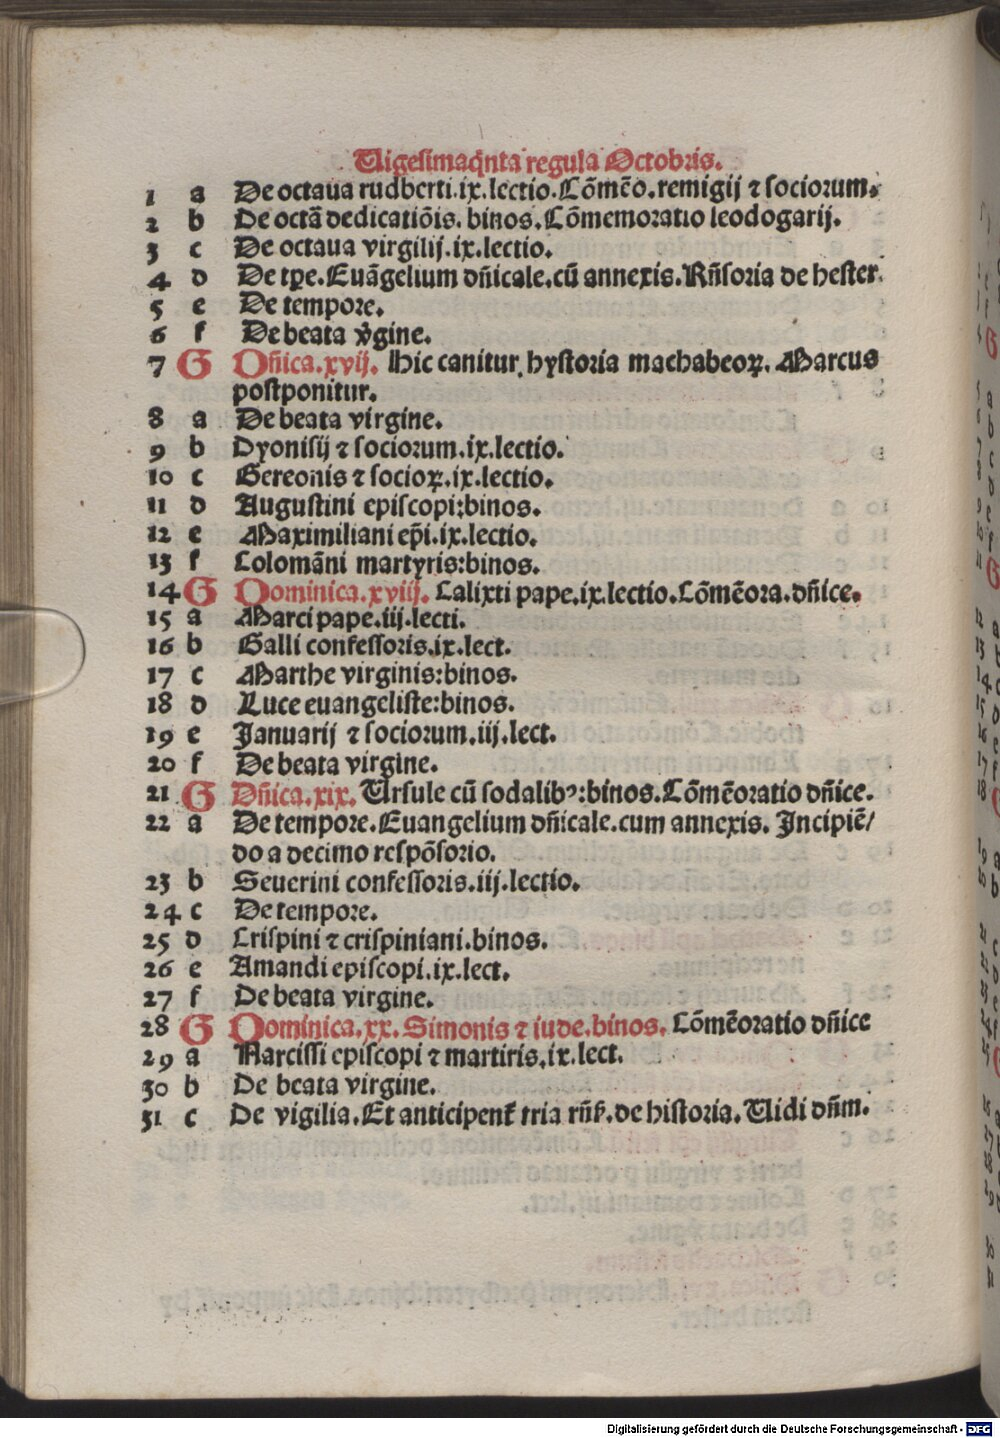 Vigesimaq̃nta regula Octobris.
1 a De octaua rudberti.ix.lectio.Cõmẽo.remigij ⁊ sociorum.
2 b De octã dedicatiõis. binos.Cõmemoratio leodogarij.
3 c De octaua virgilij.ix.lectio.
4 d De tꝑe.Euãgelium dñicale.cũ annexis.Rñsoria de hester.
5 e De tempore.
6 f De beata v̾gine.
7 G Dñica.xvij. Hic canitur hystoria machabeoꝝ. Marcus
postponitur.
8 a De beata virgine.
9 b Dyonisij ⁊ sociorum.ix.lectio.
10 c Gereonis ⁊ socioꝝ.ix.lectio.
11 d Augustini episcopi:binos.
12 e Maximiliani ep̃i.ix.lectio.
13 f Colomãni martyris:binos.
14 G Dominica.xviij. Calixti pape.ix.lectio.Cõmẽora.dñice.
15 a Marci pape.iij.lecti.
16 b Galli confessoris.ix.lect.
17 c Marthe virginis:binos.
18 d Luce euangeliste:binos.
19 e Januarij ⁊ sociorum.iij.lect.
20 f De beata virgine.
21 G Dñica.xix. Ursule cũ sodalibꝰ:binos.Cõmẽoratio dñice.
22 a De tempore.Euangelium dñicale.cum annexis. Incipiẽ/
do a decimo respõsorio.
23 b Seuerini confessoris.iij.lectio.
24 c De tempore.
25 d Crispini ⁊ crispiniani.binos.
26 e Amandi episcopi.ix.lect.
27 f De beata virgine.
28 G Dominica.xx. Simonis ⁊ iude.binos. Cõmẽoratio dñice
29 a Narcissi episcopi ⁊ martiris.ix.lect.
30 b De beata virgine.
31 c De vigilia.Et anticipent᷑ tria rñs̃.de historia. Vidi dñm.
Digitalisierung gefördert durch die Deutsche Forschungsgemeinschaft - DFG